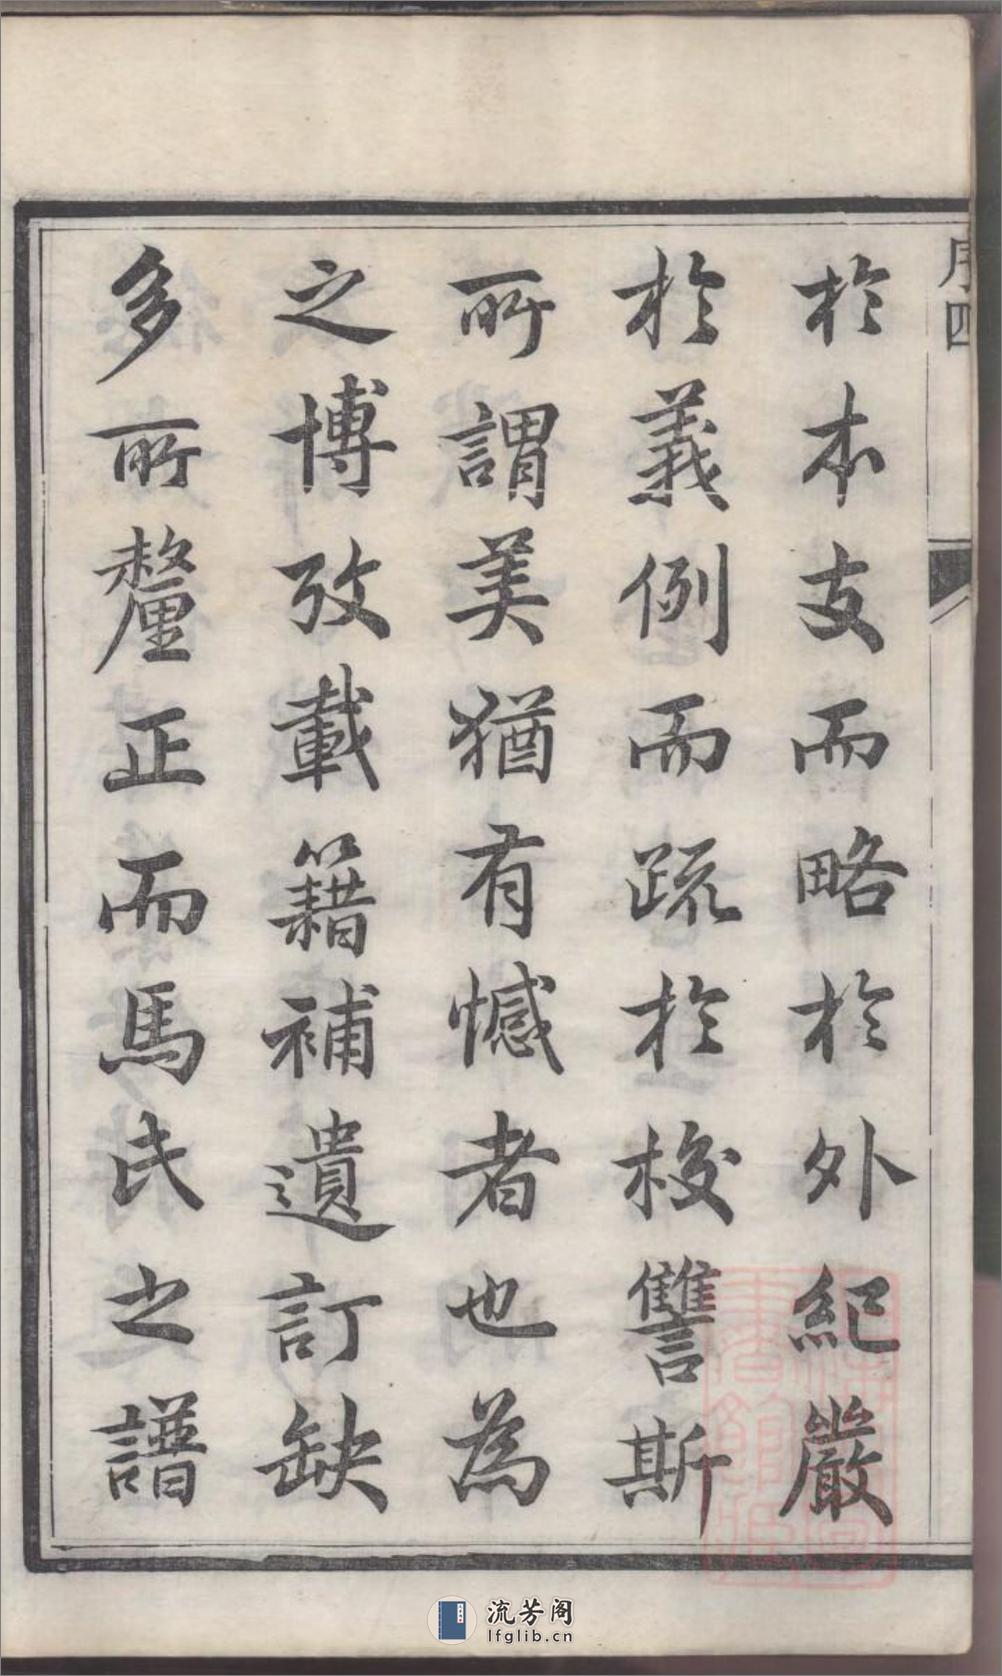 序四
於本支而略於外紀嚴
於義例而疏於校讐斯
所謂美猶有憾者也為
之博攷載籍補遺訂缺
多所釐正而馬氏之譜
流芳阁
lfglib.cn